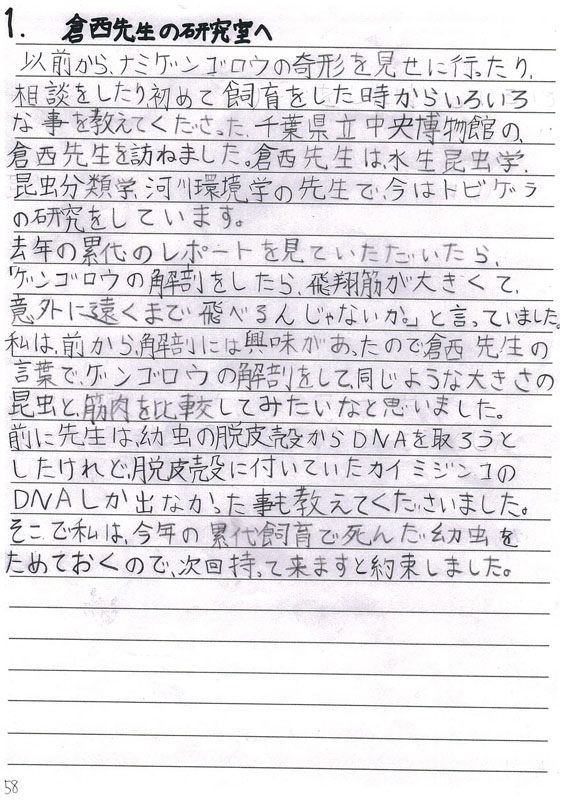 1. 倉西先生の研究室へ
以前から、ナミゲンゴロウの奇形を見せに行ったり、
相談をしたり初めて飼育をした時からいろいろ
な事を教えてくださった、千葉県立中央博物館の、
倉西先生を訪ねました。倉西先生は、水生昆虫学、
昆虫分類学、河川環境学の先生で、今はトビゲラ
の研究をしています。
去年の累代のレポートを見ていただいたら、
「ゲンゴロウの解剖をしたら、飛翔筋が大きくて、
意外に遠くまで飛べるんじゃないか。」と言っていました。
私は、前から、解剖には興味があったので倉西先生の
言葉で、ゲンゴロウの解剖をして、同じような大きさの
昆虫と、筋肉を比較してみたいなと思いました。
前に先生は、幼虫の脱皮殻からDNAを取ろうと
したけれど、脱皮殻に付いていたカイミジンコの
DNAしか出なかった事も教えてくださいました。
そこで私は、今年の累代飼育で死んだ幼虫を
ためておくので、次回持って来ますと約束しました。
58